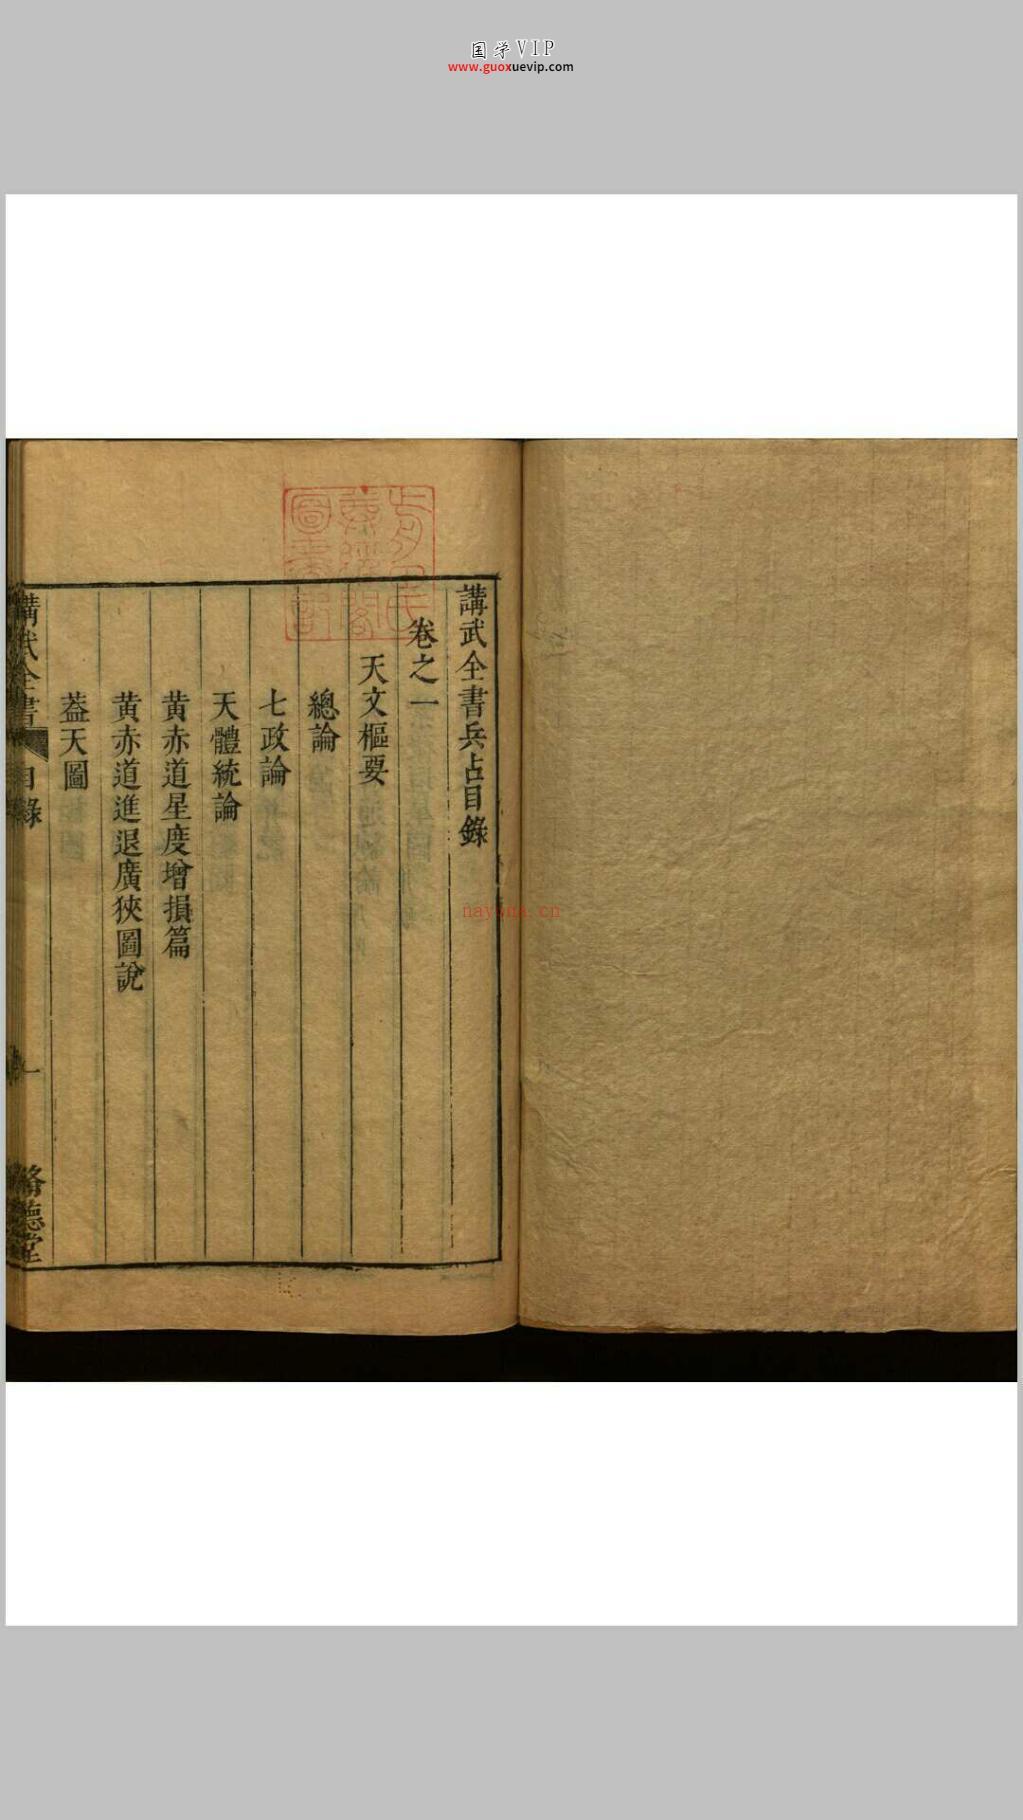 国学VIP
www.guoxuevip.com
講武全書兵占目錄
卷之一
天文樞要
總論
七政論
天體統論
黄赤道星度增損篇
黄赤道進退廣狹圖說
葢天圖
講武全書
目錄
一
脩德堂